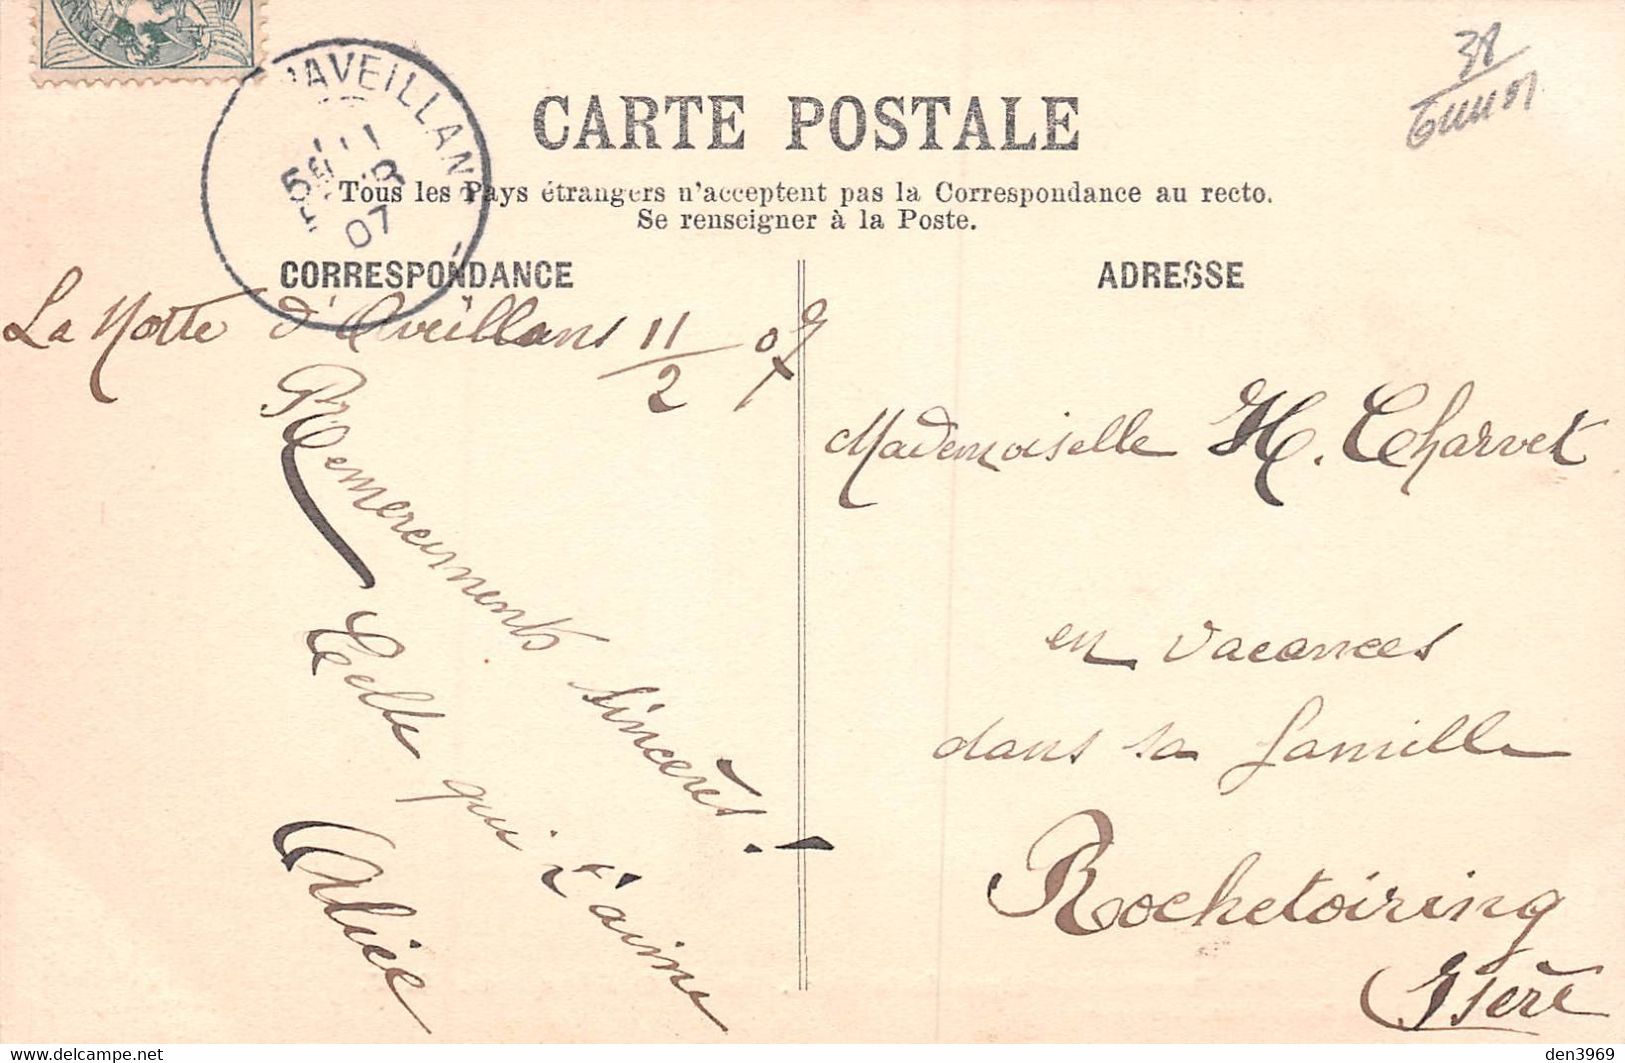 'AVEILLAN
07
38
CARTE POSTALE
Tous les Pays étrangers n'acceptent pas la Correspondance au recto.
Se renseigner à la Poste.
CORRESPONDANCE
ADRESSE
La Motte d'Aveillans 11/2 07
Remerciments sincères!
Celle qui t'aime
Alice
Mademoiselle H. Charvet
en vacances
dans sa famille
Rochetoiring
Isère
den3969